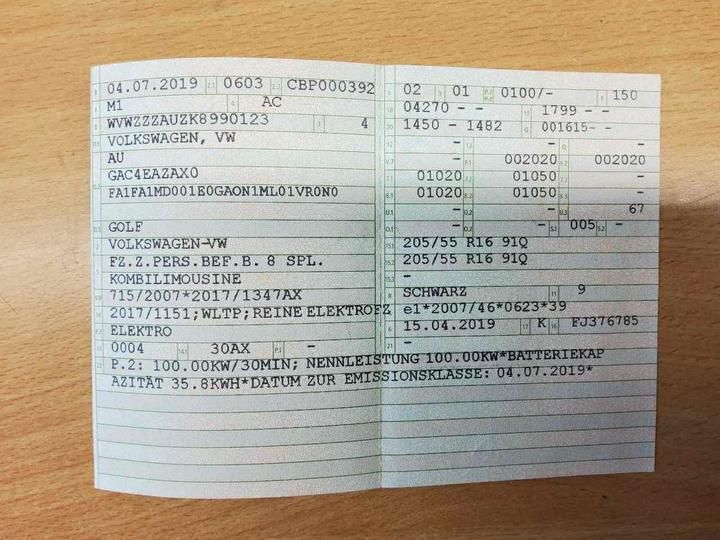 04.07.2019 0603 CBP000392
M1 AC
WVWZZZAUZK8990123 4
VOLKSWAGEN, VW
AU
GAC4EAZAX0
FA1FA1MD001E0GAON1ML01VR0N0
GOLF
VOLKSWAGEN-VW
FZ.Z.PERS.BEF.B. 8 SPL.
KOMBILIMOUSINE
715/2007*2017/1347AX
2017/1151;WLTP;REINE ELEKTROFZ
ELEKTRO
0004 30AX -
02 01 0100/- 150
04270 - - 1799 - -
1450 - 1482 001615- -
- - -
- 002020 002020
01020 01050 -
01020 01050 -
- - 67
- - 005 -
205/55 R16 91Q
205/55 R16 91Q
-
SCHWARZ 9
e1*2007/46*0623*39
15.04.2019 K FJ376785
-
P.2: 100.00KW/30MIN; NENNLEISTUNG 100.00KW*BATTERIEKAP
AZITÄT 35.8KWH*DATUM ZUR EMISSIONSKLASSE: 04.07.2019*